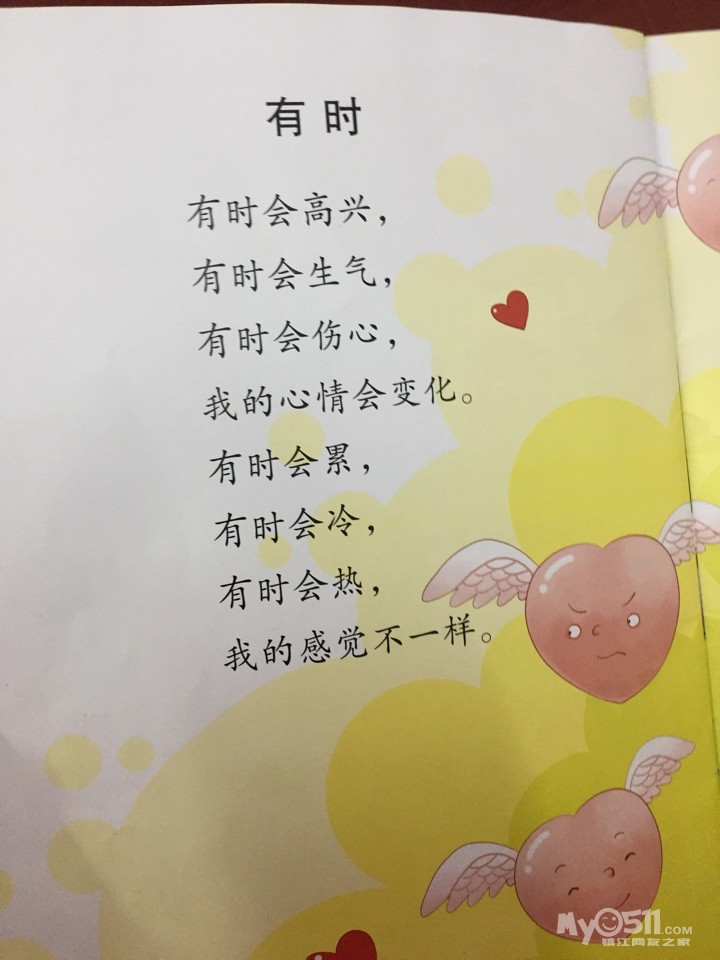 有时
有时会高兴，
有时会生气，
有时会伤心，
我的心情会变化。
有时会累，
有时会冷，
有时会热，
我的感觉不一样。
My0511.COM
镇江网友之家